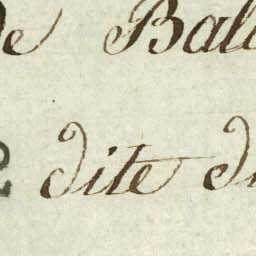 de Bal
dite d